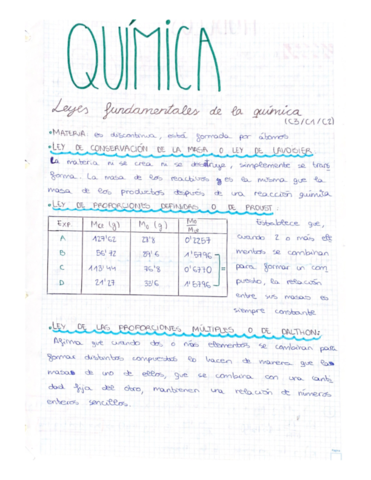 QUÍMICA
Leyes fundamentales de la química
(C3/C1/C2)
•MATERIA es discontinua, está formada por átomos
•LEY DE CONSERVACIÓN DE LA MASA O LEY DE LAVOISIER
La materia ni se crea ni se destruye, simplemente se trans
forma. La masa de los reactivos es la misma que la
masa de los productos después de una reacción química
•LEY DE PROPORCIONES DEFINIDAS O DE PROUST:
Exp Mcl (g) Mo (g)
A 127'62 0'2257
B 56'72 1'5796
C 113'44 76'8 0'6770
D 21'27 1'5796
Establece que,
cuando 2 o más ele
mentos se combinan
para formar un com
puesto, la relación
entre sus masas es
siempre constante
•LEY DE LAS PROPORCIONES MÚLTIPLES O DE DALTHON:
Afirma que cuando dos o más elementos se combinan para
formar distintos compuestos lo hacen de manera que las
masas de uno de ellos, que se combina con una canti
dad fija del otro, mantienen una relación de números
enteros sencillos.